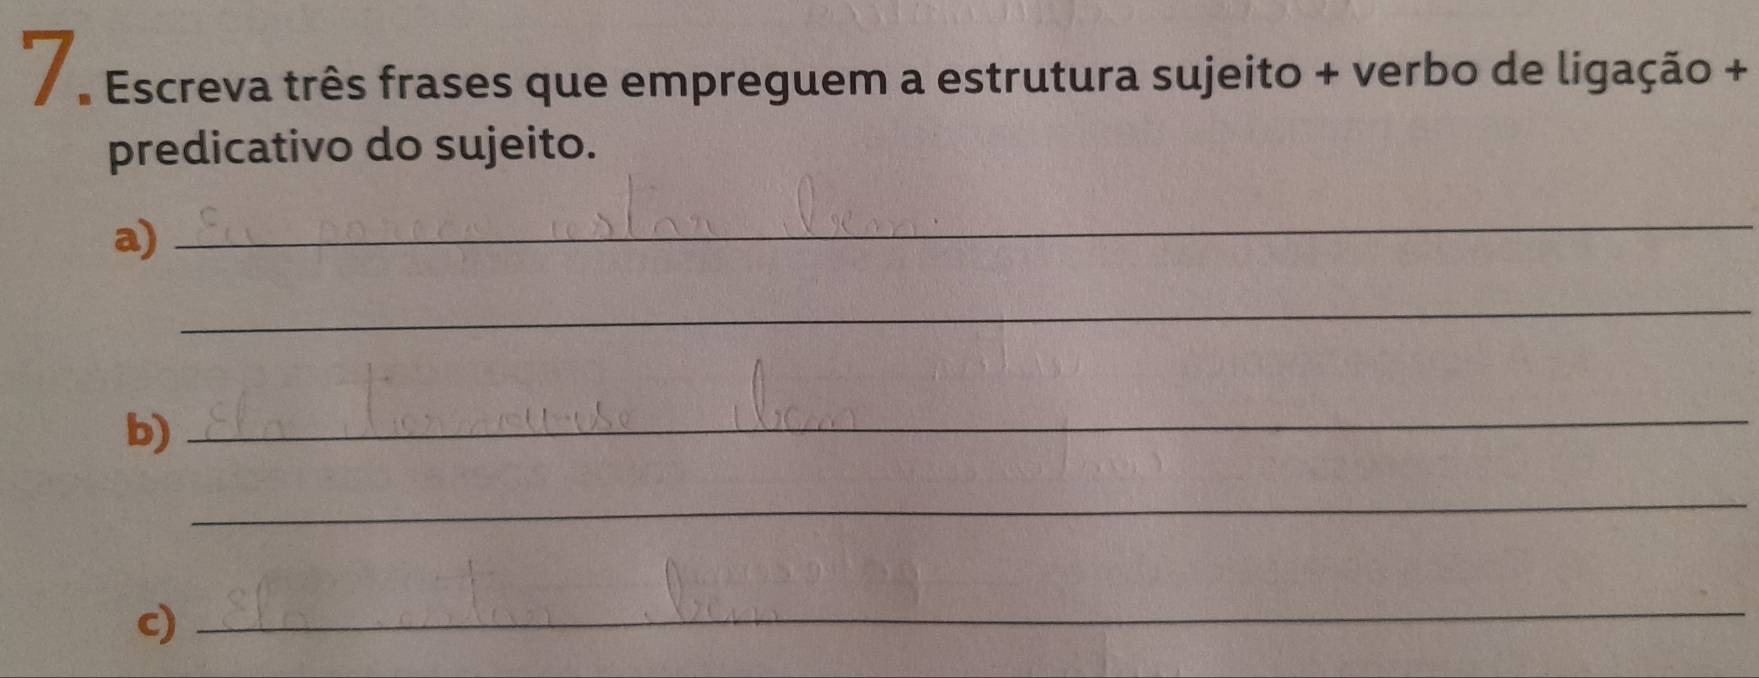 7. Escreva três frases que empreguem a estrutura sujeito + verbo de ligação +
predicativo do sujeito.
a) Eu pareço estar bem.
b) Ela bem
c) Ela estar bem